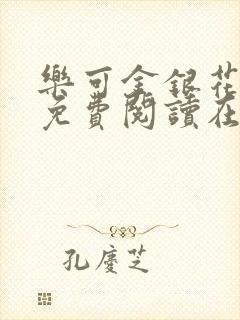 樂可金銀花
免費閱讀在
孔慶芝